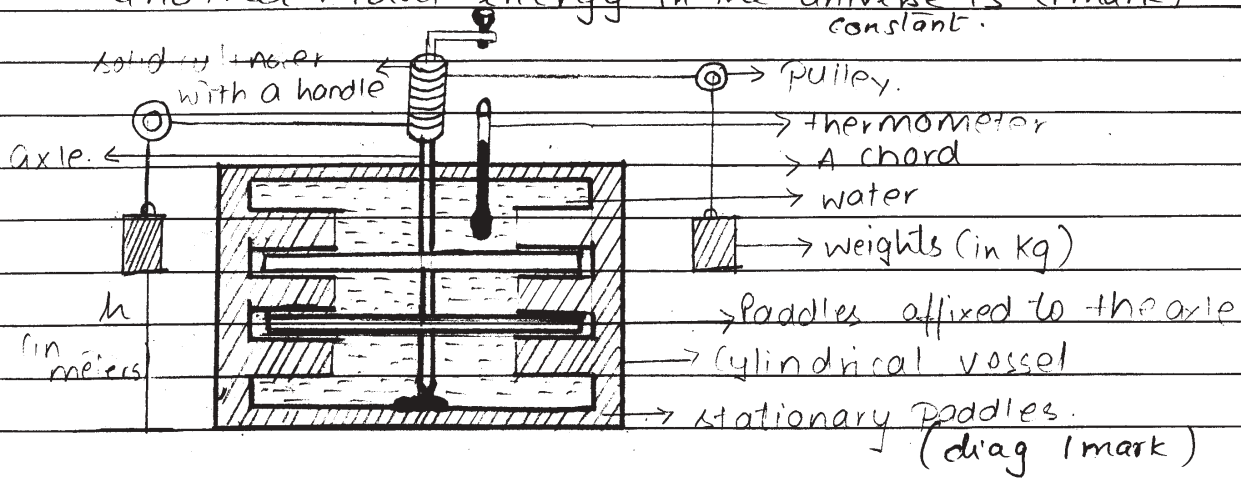 another. Total energy in the universe is (1mark)
constant.
solid cylinder
with a handle
pulley.
thermometer
axle.
A chord
water
weights (in kg)
h
(in
meters)
Paddles affixed to the axle
Cylindrical vossel
stationary paddles.
(diag 1mark)